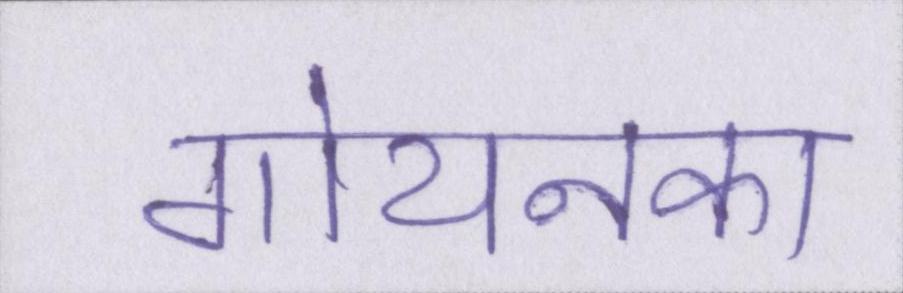 गोयनका